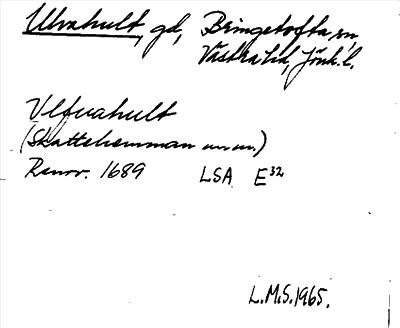 Ulvahult, gd, Bringetofta sn,
Västra hd, Jönk. l.
Ulfuahult
(Skattehemman um um.)
Renov. 1689 LSA E³²
L.M.S. 1965.